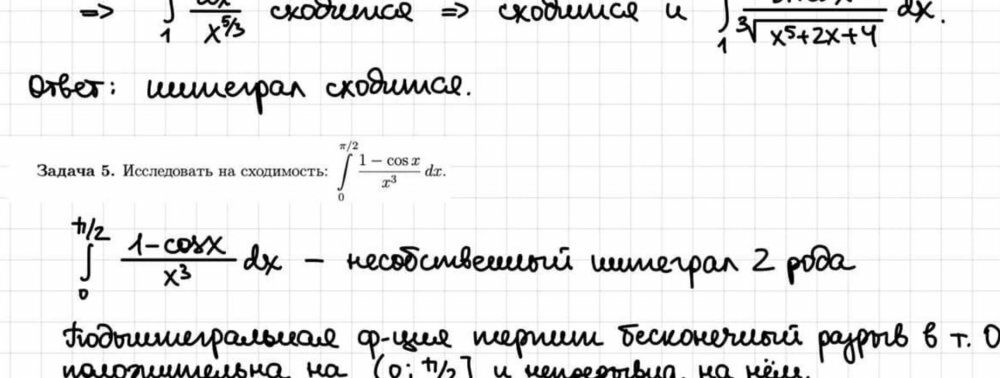 => ∫₁ dx/x^(5/3) сходится => сходится и ∫₁ / ∛(x⁵+2x+4) dx.
Ответ: интеграл сходится.
Задача 5. Исследовать на сходимость: ∫₀^(π/2) (1 − cos x)/x³ dx.
∫₀^(π/2) (1-cosx)/x³ dx – несобственный интеграл 2 рода
Подынтегральная ф-ция терпит бесконечный разрыв в т. 0
положительна на (0; π/2] и непрерывна на нём.